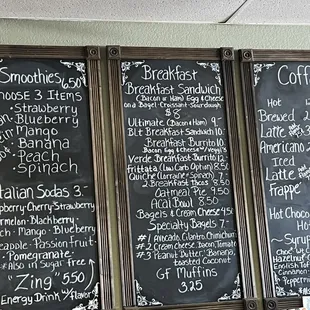 Smoothies 6.50
Choose 3 Items
Strawberry
Blueberry
Mango
Banana
Peach
Spinach
Italian Sodas 3.
Raspberry-Cherry-Strawberry
Watermelon-Blackberry-
Peach-Mango-Blueberry
Pineapple-Passion Fruit
Pomegranate
Also in Sugar Free
"Zing" 5.50
Energy Drink w/Flavor
Breakfast
Breakfast Sandwich
(Bacon or Ham) Egg & Cheese
on a Bagel-Croissant-Sourdough
$8
Ultimate (Bacon & Ham) 9-
Blt Breakfast Sandwich 10.
Breakfast Burrito 10
Bacon Egg & Cheese w/Veggies
Verde Breakfast Burrito 12
Frittata (Low Carb Option) 8.50
Quiche (Lorraine-Spinach) 8.50
2 Breakfast Tacos 8.50
Oatmeal Pie 9.50
Acai Bowl 8.50
Bagels & Cream Cheese 4.50
Specialty Bagels 7-
#1 Avocado, Cilantro, Chimichurri
#2 Cream Cheese, Bacon, Tomato
#3 Peanut Butter, Banana,
Toasted Coconut
GF Muffins
3.25
Coff
Hot
Brewed 2
Latte
Americano 2
Iced
Latte
Frappe
Hot Choco
Hot
~Syrup
Hazelnut
English Toff
Cinnamon
Peppermin